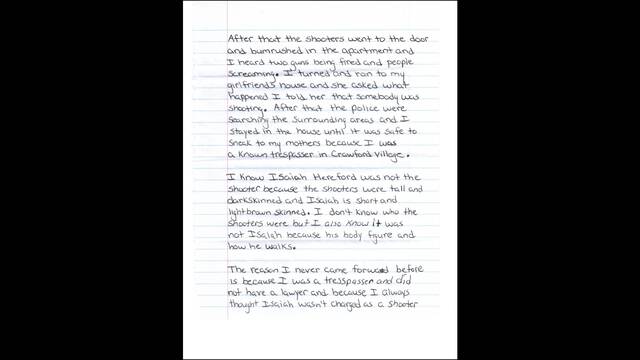 After that the shooters went to the door
and bumrushed in the apartment and
I heard two guns being fired and people
screaming. I turned and ran to my
girlfriends house and she asked what
happened I told her that somebody was
shooting. After that the police were
searching the surrounding areas and I
stayed in the house until it was safe to
sneak to my mothers because I was
a known trespasser in Crawford Village.
I know ISaiah Hereford was not the
shooter because the shooters were tall and
darkskinned and Isaiah is short and
lightbrown skinned. I don't know who the
shooters were but I also know it was
not ISaiah because his body figure and
how he walks.
The reason I never came forward before
is because I was a tresspasser and did
not have a lawyer and because I always
thought Isaiah wasn't charged as a shooter